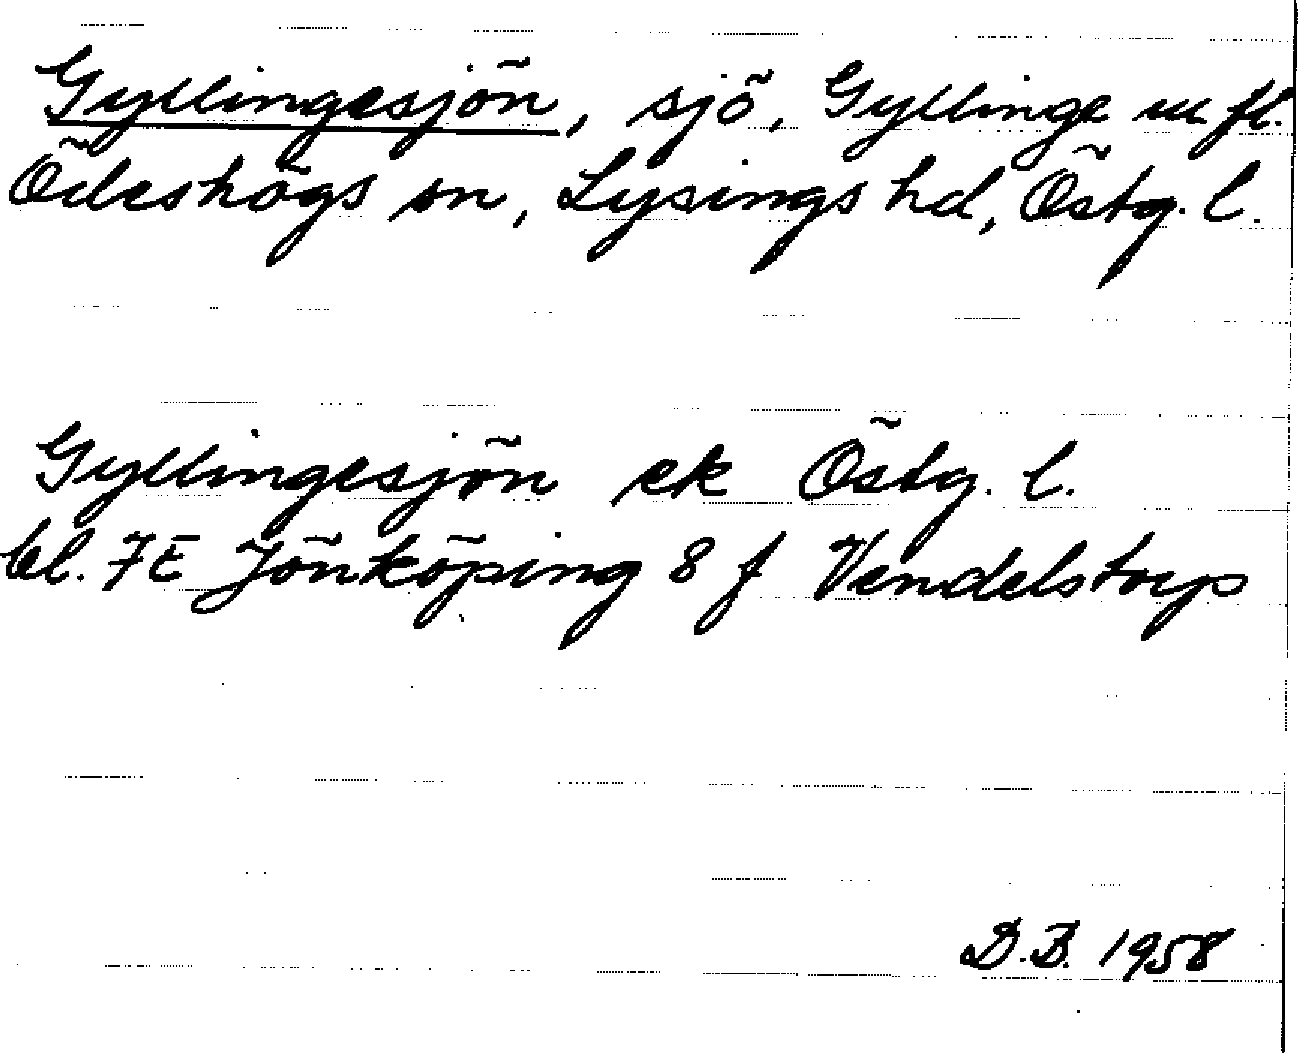 Gyllingesjön, sjö, Gyllinge m fl.
Ödeshögs sn, Lysings hd, Östg. l.
Gyllingesjön ek Östg. l.
bl. 7E Jönköping 8 f Vendelstorp
D.B. 1958